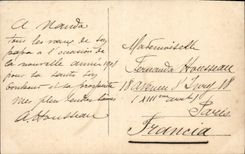 A Nanda
tous les vœux de son
papa a l'occasion de
la nouvelle année
pour la santé son
bonheur et la prospérité
mes plus tendres
A Housseau
Mademoiselle
Fernanda Housseau
18 avenue d'Ivry 18
(XIIIme
Paris
Francia